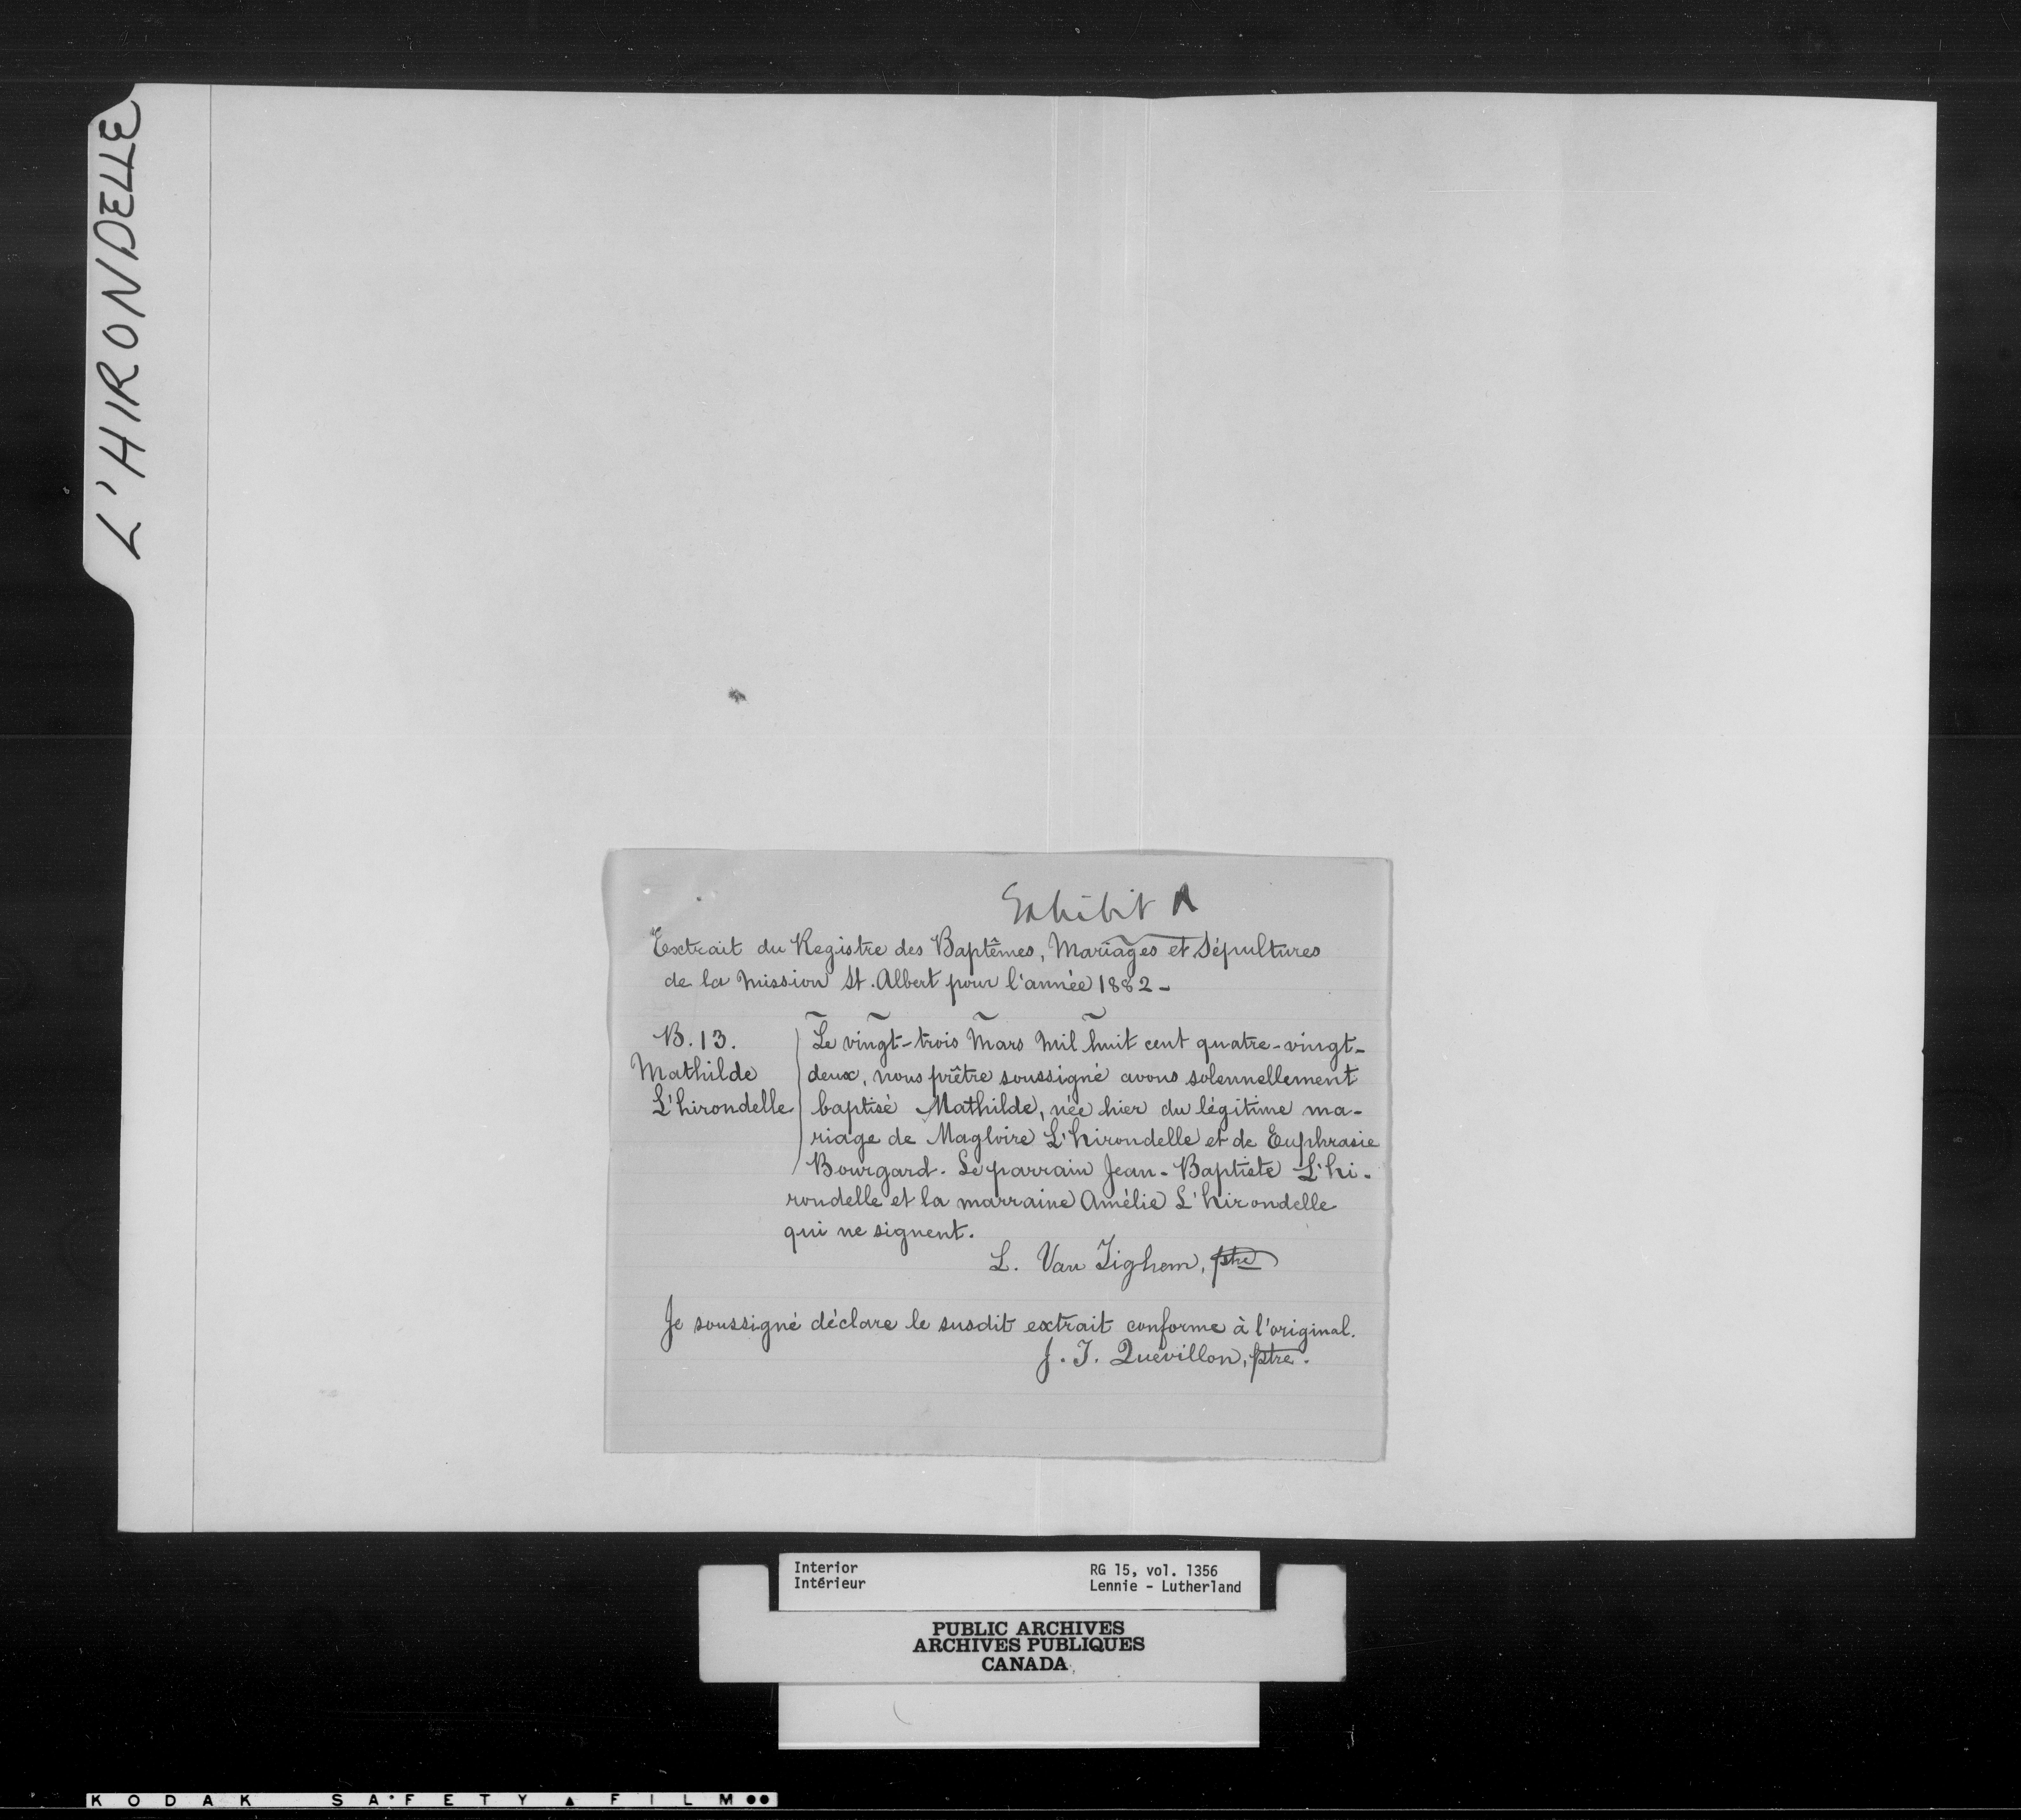 L'HIRONDELLE
Exhibit A
Extrait du Registre des Baptêmes, Mariages et Sépultures
de la Mission St. Albert pour l'année 1882 -
B. 13.
Mathilde
L'hirondelle
Le vingt-trois Mars mil huit cent quatre-vingt-
deux, nous prêtre soussigné avons solennellement
baptisé Mathilde, née hier du légitime ma-
riage de Magloire L'hirondelle et de Euphrasie
Bourgard. Le parrain Jean-Baptiste L'hi-
rondelle et la marraine Amélie L'hirondelle
qui ne signent.
L. Van Tighem, ptre
Je soussigné déclare le susdit extrait conforme à l'original.
J. I. Quévillon, ptre.
Interior
Intérieur
RG 15, vol. 1356
Lennie - Lutherland
PUBLIC ARCHIVES
ARCHIVES PUBLIQUES
CANADA
KODAK SAFETY FILM